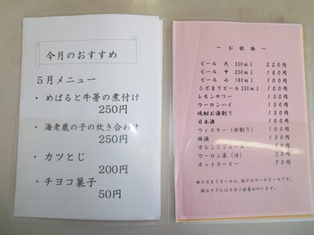 今月のおすすめ
5月メニュー
・めばると牛蒡の煮付け
250円
・海老鹿の子の炊き合わせ
250円
・カツとじ
200円
・チヨコ菓子
50円
～お飲物～
ビール 大 350ml 220円
ビール 中 250ml 180円
ビール 小 135ml 100円
ひだまりビール350ml 100円
レモンサワー 150円
ウーロンハイ 150円
焼酎お湯割り 150円
日本酒 150円
ウィスキー(水割り) 100円
梅酒 150円
オレンジジュース 50円
ウーロン茶(冷) 50円
ホットコーヒー 70円